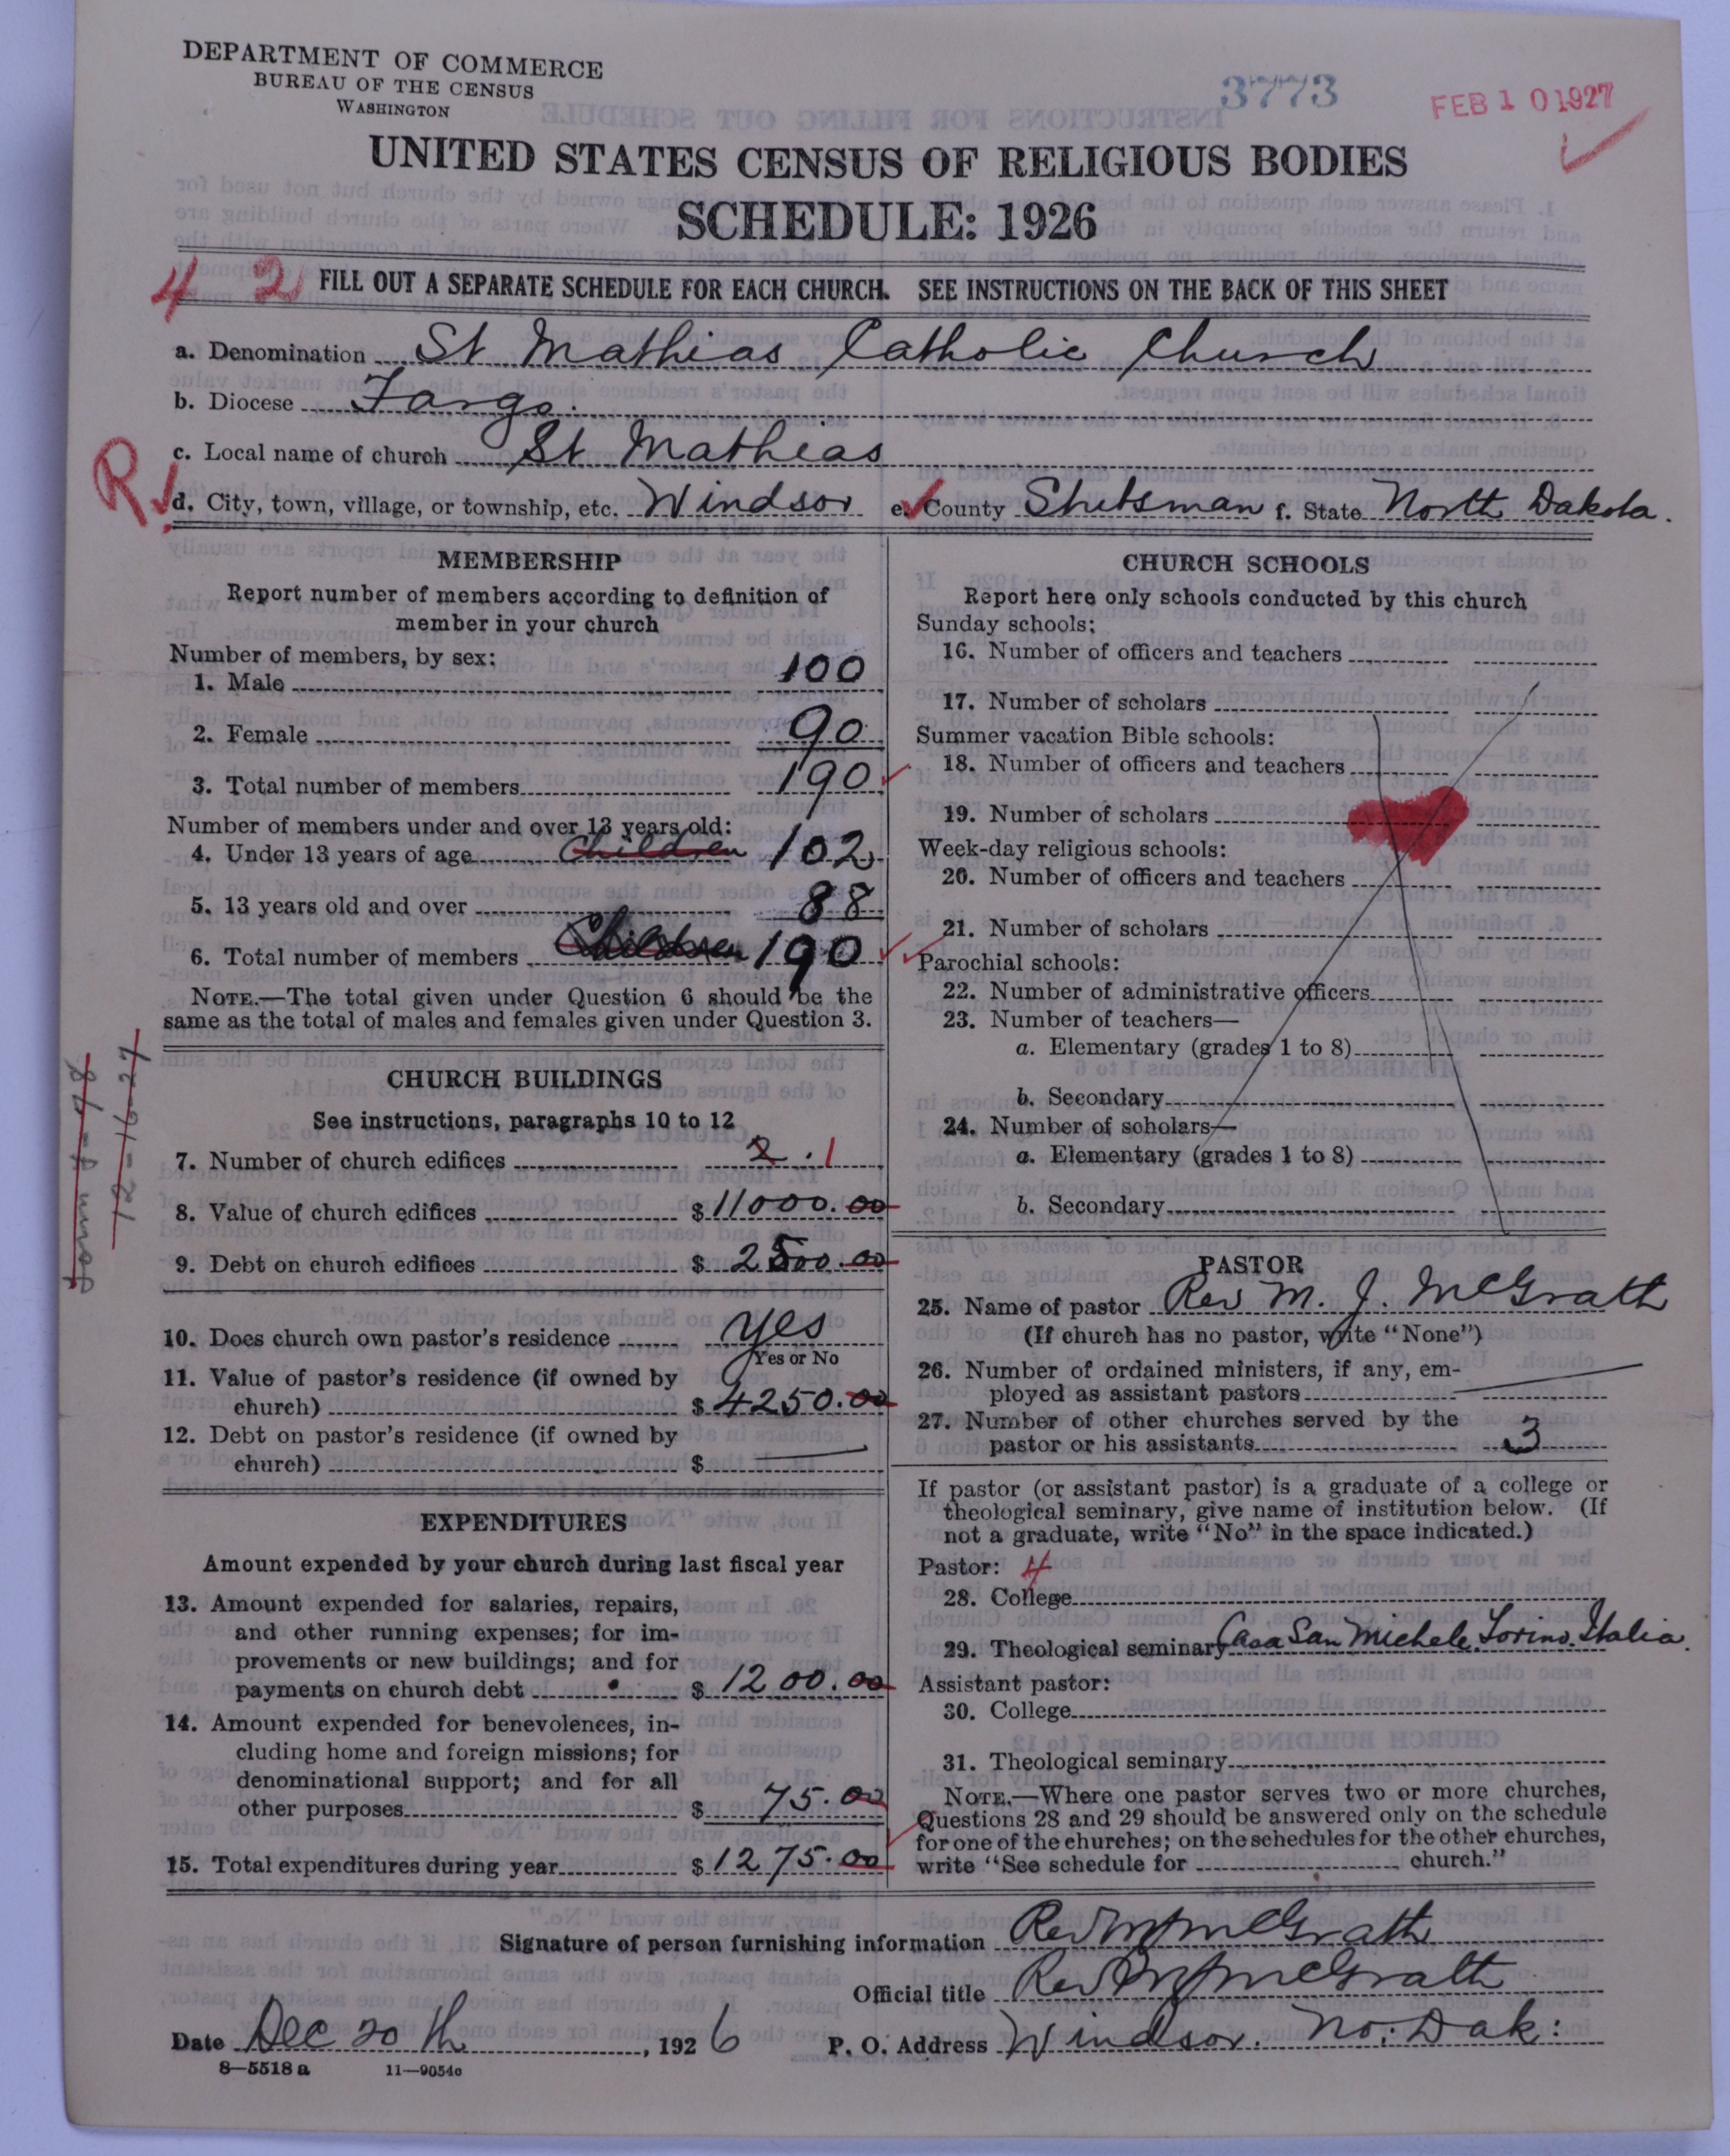 DEPARTMENT OF COMMERCE
BUREAU OF THE CENSUS
WASHINGTON
3773
FEB 10 1927
UNITED STATES CENSUS OF RELIGIOUS BODIES
SCHEDULE: 1926
4 2 FILL OUT A SEPARATE SCHEDULE FOR EACH CHURCH. SEE INSTRUCTIONS ON THE BACK OF THIS SHEET
a. Denomination St Mathias Catholic Church
b. Diocese Fargo.
c. Local name of church St Mathias
R
d. City, town, village, or township, etc. Windsor e. County Stutsman f. State North Dakota.
MEMBERSHIP
Report number of members according to definition of
member in your church
Number of members, by sex:
1. Male 100
2. Female 90
3. Total number of members 190
Number of members under and over 13 years old:
4. Under 13 years of age Children 102
5. 13 years old and over 88
6. Total number of members Children 190
NOTE.—The total given under Question 6 should be the
same as the total of males and females given under Question 3.
CHURCH BUILDINGS
See instructions, paragraphs 10 to 12
7. Number of church edifices 2. 1
8. Value of church edifices $ 11000.00
9. Debt on church edifices $ 2500.00
10. Does church own pastor's residence yes
Yes or No
11. Value of pastor's residence (if owned by
church) $ 4250.00
12. Debt on pastor's residence (if owned by
church) $
12-16-27
EXPENDITURES
Amount expended by your church during last fiscal year
13. Amount expended for salaries, repairs,
and other running expenses; for im-
provements or new buildings; and for
payments on church debt $ 1200.00
14. Amount expended for benevolences, in-
cluding home and foreign missions; for
denominational support; and for all
other purposes $ 75.00
15. Total expenditures during year $ 1275.00
CHURCH SCHOOLS
Report here only schools conducted by this church
Sunday schools:
16. Number of officers and teachers
17. Number of scholars
Summer vacation Bible schools:
18. Number of officers and teachers
19. Number of scholars
Week-day religious schools:
20. Number of officers and teachers
21. Number of scholars
Parochial schools:
22. Number of administrative officers
23. Number of teachers—
a. Elementary (grades 1 to 8)
b. Secondary
24. Number of scholars—
a. Elementary (grades 1 to 8)
b. Secondary
PASTOR
25. Name of pastor Rev M. J. McGrath
(If church has no pastor, write "None")
26. Number of ordained ministers, if any, em-
ployed as assistant pastors
27. Number of other churches served by the
pastor or his assistants 3
If pastor (or assistant pastor) is a graduate of a college or
theological seminary, give name of institution below. (If
not a graduate, write "No" in the space indicated.)
Pastor: 4
28. College
29. Theological seminary Casa San Michele. Torino. Italia.
Assistant pastor:
30. College
31. Theological seminary
NOTE.—Where one pastor serves two or more churches,
Questions 28 and 29 should be answered only on the schedule
for one of the churches; on the schedules for the other churches,
write "See schedule for church."
Signature of person furnishing information Rev M J McGrath
Official title Rev M J McGrath
Date Dec 20 th, 1926 P. O. Address Windsor. No. Dak:
8—5518 a 11—9054c